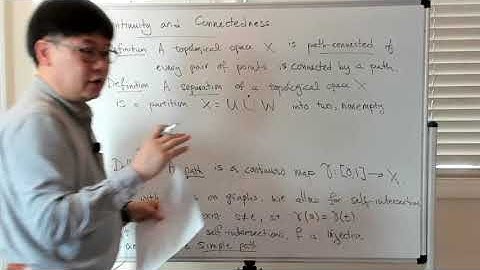 ontinuity and Connectedness
Definition A topological space X is path-connected if
every pair of points is connected by a path.
Definition A separation of a topological space X
is a partition X = U ⊔ W into two, nonempty
Def path is a continuous map γ: [0,1] → X.
on graphs, we allow for self-intersection
s≠t, st γ(s) = γ(t)
self-intersections, is injective
simple path